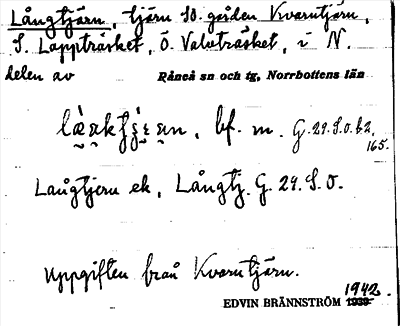 Långtjärn, tjärn SO. gården Kvarntjärn,
S. Lappträsket, Ö. Valvträsket, i N.
delen av Råneå sn och tg, Norrbottens län
bf. m. G. 29. S. O. 62.
165.
Långtjern ek, Långtj. G. 29. S. O.
Uppgiften från Kvarntjärn.
1942.
EDVIN BRÄNNSTRÖM 1939